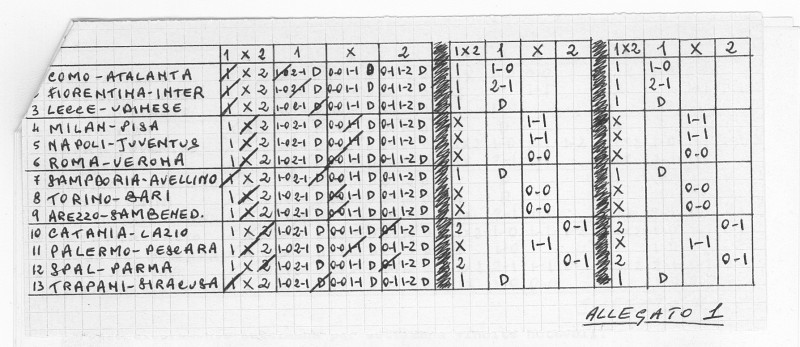 1 X 2 1 X 2 1X2 1 X 2 1X2 1 X 2
COMO-ATALANTA 1 X 2 1-0 2-1 D 0-0 1-1 D 0-1 1-2 D 1 1-0 1 1-0
FIORENTINA-INTER 1 X 2 1-0 2-1 D 0-0 1-1 D 0-1 1-2 D 1 2-1 1 2-1
3 LECCE-UDINESE 1 X 2 1-0 2-1 D 0-0 1-1 D 0-1 1-2 D 1 D 1 D
4 MILAN-PISA 1 X 2 1-0 2-1 D 0-0 1-1 D 0-1 1-2 D X 1-1 X 1-1
5 NAPOLI-JUVENTUS 1 X 2 1-0 2-1 D 0-0 1-1 D 0-1 1-2 D X 1-1 X 1-1
6 ROMA-VERONA 1 X 2 1-0 2-1 D 0-0 1-1 D 0-1 1-2 D X 0-0 X 0-0
7 SAMPDORIA-AVELLINO 1 X 2 1-0 2-1 D 0-0 1-1 D 0-1 1-2 D 1 D 1 D
8 TORINO-BARI 1 X 2 1-0 2-1 D 0-0 1-1 D 0-1 1-2 D X 0-0 X 0-0
9 AREZZO-SAMBENED. 1 X 2 1-0 2-1 D 0-0 1-1 D 0-1 1-2 D X 0-0 X 0-0
10 CATANIA-LAZIO 1 X 2 1-0 2-1 D 0-0 1-1 D 0-1 1-2 D 2 0-1 2 0-1
11 PALERMO-PESCARA 1 X 2 1-0 2-1 D 0-0 1-1 D 0-1 1-2 D X 1-1 X 1-1
12 SPAL-PARMA 1 X 2 1-0 2-1 D 0-0 1-1 D 0-1 1-2 D 2 0-1 2 0-1
13 TRAPANI-SIRACUSA 1 X 2 1-0 2-1 D 0-0 1-1 D 0-1 1-2 D 1 D 1 D
ALLEGATO 1